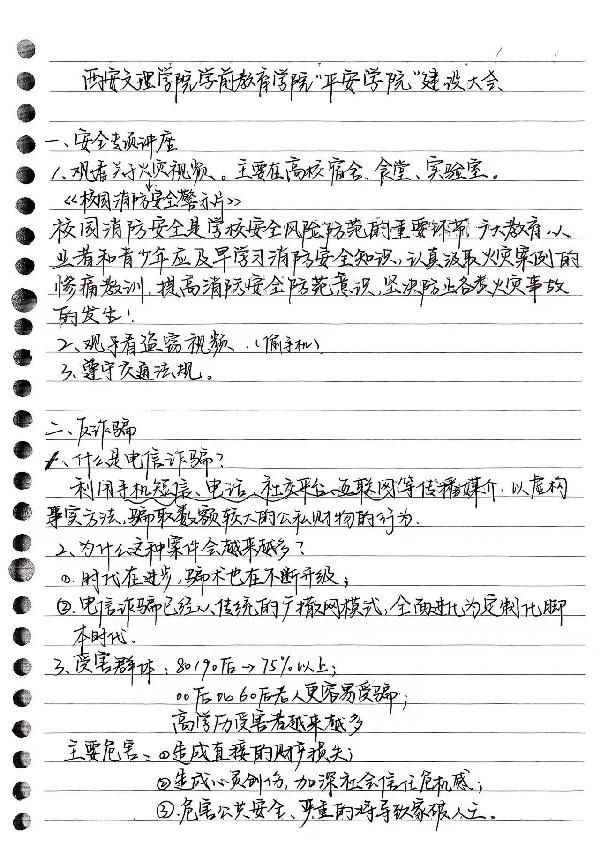 西安文理学院学前教育学院“平安学院”建设大会
一、安全专项讲座
1、观看关于火灾视频。主要在高校宿舍、食堂、实验室。
《校园消防安全警示片》
校园消防安全是学校安全风险防范的重要环节,广大教育从
业者和青少年应及早学习消防安全知识,认真汲取火灾案例的
惨痛教训,提高消防安全防范意识,坚决防止各类火灾事故
的发生!
2、观看盗窃视频、(偷手机)
3、遵守交通法规。
二、反诈骗
1、什么是电信诈骗?
利用手机短信、电话、社交平台、互联网等传播媒介,以虚构
事实方法,骗取数额较大的公私财物的行为.
2、为什么这种案件会越来越多?
①.时代在进步,骗术也在不断升级;
②.电信诈骗已经从传统的广撒网模式,全面进化为定制化脚
本时代.
3、受害群体:80/90后→75%以上;
00后比60后老人更容易受骗;
高学历受害者越来越多
主要危害:①造成直接的财产损失;
②造成心灵创伤,加深社会信任危机感;
③.危害公共安全、严重的将导致家破人亡。